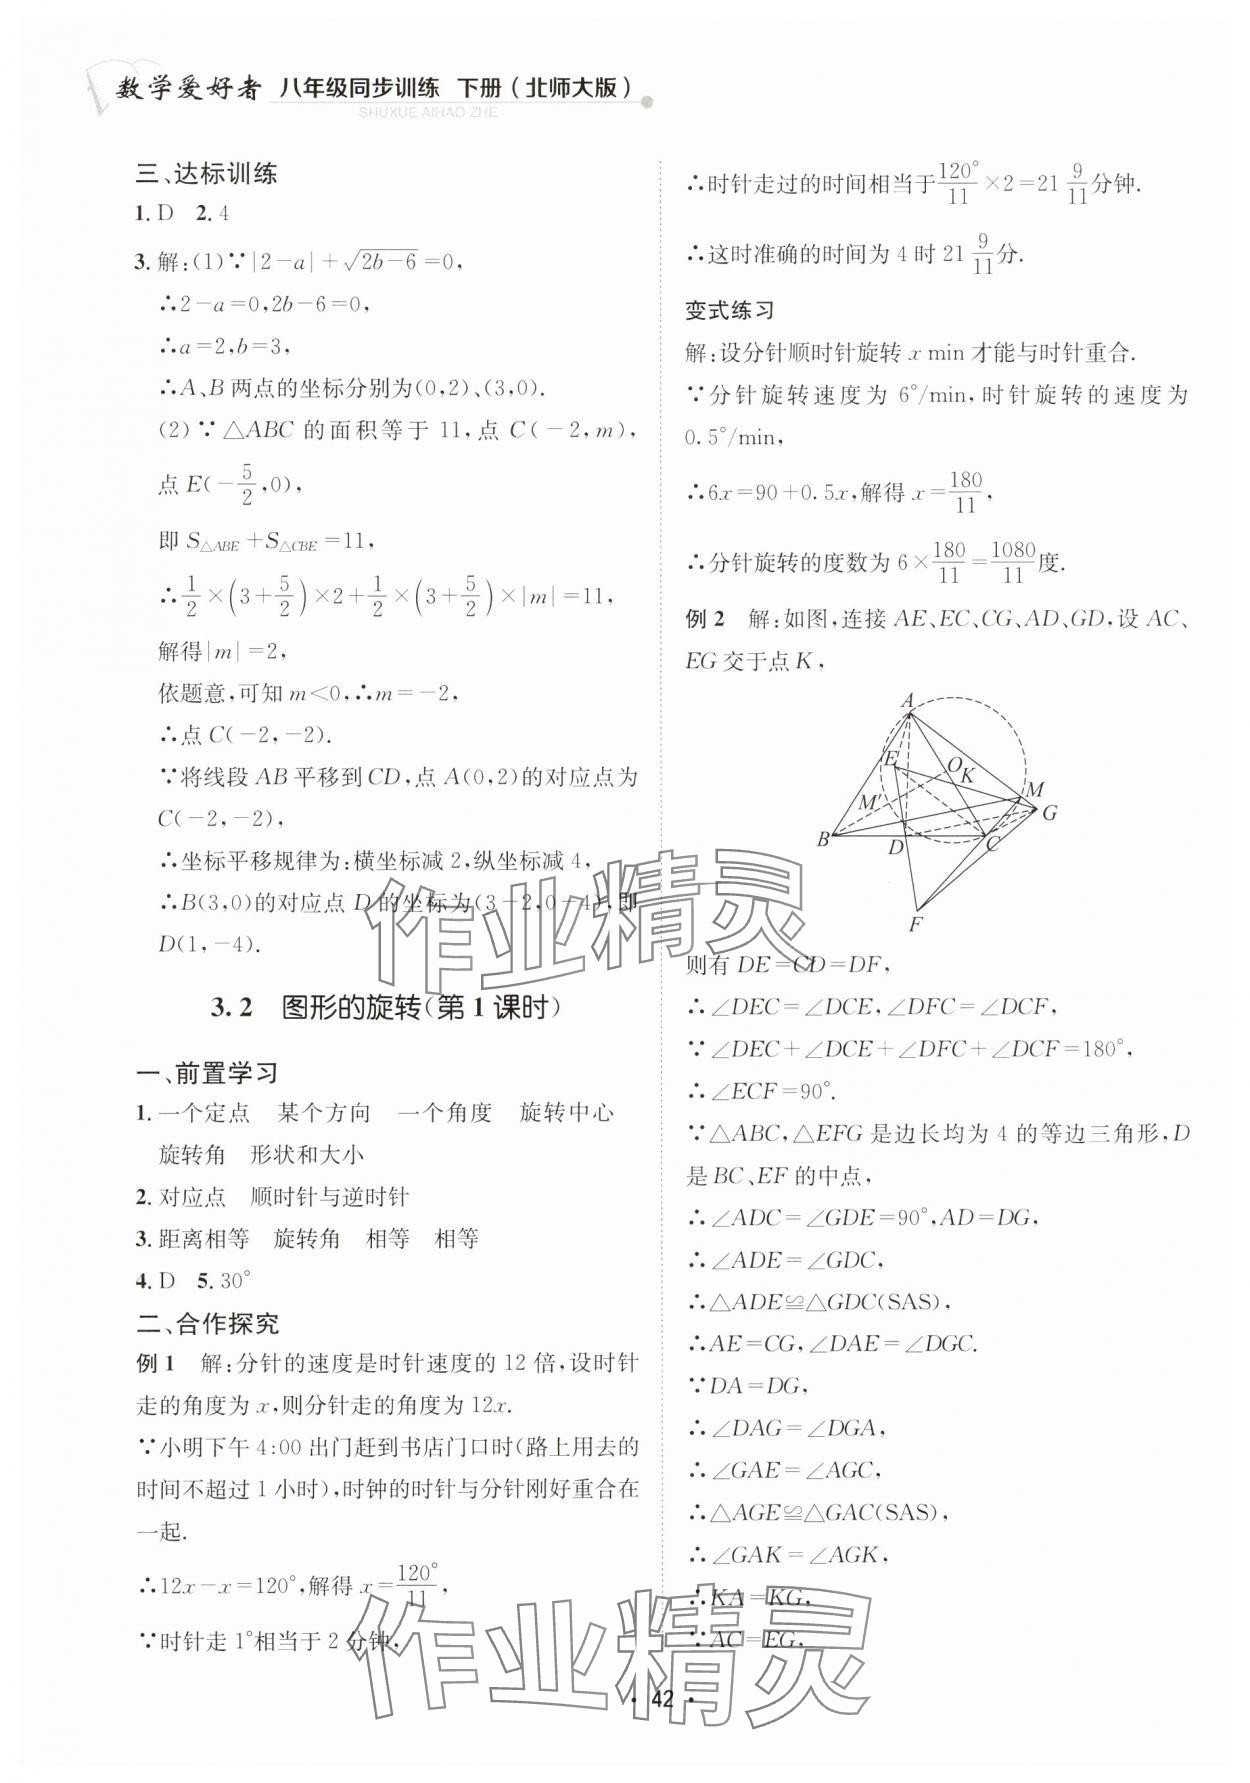 数学爱好者 八年级同步训练 下册（北师大版）
SHUXUE AIHAO ZHE
三、达标训练
1. D 2. 4
3. 解：(1)∵|2－a|＋√(2b－6)＝0，
∴2－a＝0，2b－6＝0，
∴a＝2，b＝3，
∴A、B 两点的坐标分别为(0，2)、(3，0).
(2)∵△ABC 的面积等于 11，点 C(－2，m)，
点 E(－5/2，0)，
即 S△ABE＋S△CBE＝11，
∴1/2×(3＋5/2)×2＋1/2×(3＋5/2)×|m|＝11，
解得|m|＝2，
依题意，可知 m＜0，∴m＝－2，
∴点 C(－2，－2).
∵将线段 AB 平移到 CD，点 A(0，2)的对应点为
C(－2，－2)，
∴坐标平移规律为：横坐标减 2，纵坐标减 4，
∴B(3，0)的对应点 D 的坐标为(3－2，0－4)，即
D(1，－4).
3.2 图形的旋转(第 1 课时)
一、前置学习
1. 一个定点 某个方向 一个角度 旋转中心
旋转角 形状和大小
2. 对应点 顺时针与逆时针
3. 距离相等 旋转角 相等 相等
4. D 5. 30°
二、合作探究
例 1 解：分针的速度是时针速度的 12 倍，设时针
走的角度为 x，则分针走的角度为 12x.
∵小明下午 4:00 出门赶到书店门口时(路上用去的
时间不超过 1 小时)，时钟的时针与分针刚好重合在
一起.
∴12x－x＝120°，解得 x＝120°/11，
∵时针走 1°相当于 2 分钟，
∴时针走过的时间相当于120°/11×2＝21 9/11分钟.
∴这时准确的时间为 4 时 21 9/11分.
变式练习
解：设分针顺时针旋转 x min 才能与时针重合.
∵分针旋转速度为 6°/min，时针旋转的速度为
0.5°/min，
∴6x＝90＋0.5x，解得 x＝180/11，
∴分针旋转的度数为 6×180/11＝1080/11度.
例 2 解：如图，连接 AE、EC、CG、AD、GD，设 AC、
EG 交于点 K，
A
E
O
K
M
M′
G
B
D
C
F
则有 DE＝CD＝DF，
∴∠DEC＝∠DCE，∠DFC＝∠DCF，
∵∠DEC＋∠DCE＋∠DFC＋∠DCF＝180°，
∴∠ECF＝90°.
∵△ABC，△EFG 是边长均为 4 的等边三角形，D
是 BC、EF 的中点，
∴∠ADC＝∠GDE＝90°，AD＝DG，
∴∠ADE＝∠GDC，
∴△ADE≌△GDC(SAS)，
∴AE＝CG，∠DAE＝∠DGC.
∵DA＝DG，
∴∠DAG＝∠DGA，
∴∠GAE＝∠AGC，
∴△AGE≌△GAC(SAS)，
∴∠GAK＝∠AGK，
∴KA＝KG，
∵AC＝EG，
作业精灵
作业精灵
· 42 ·